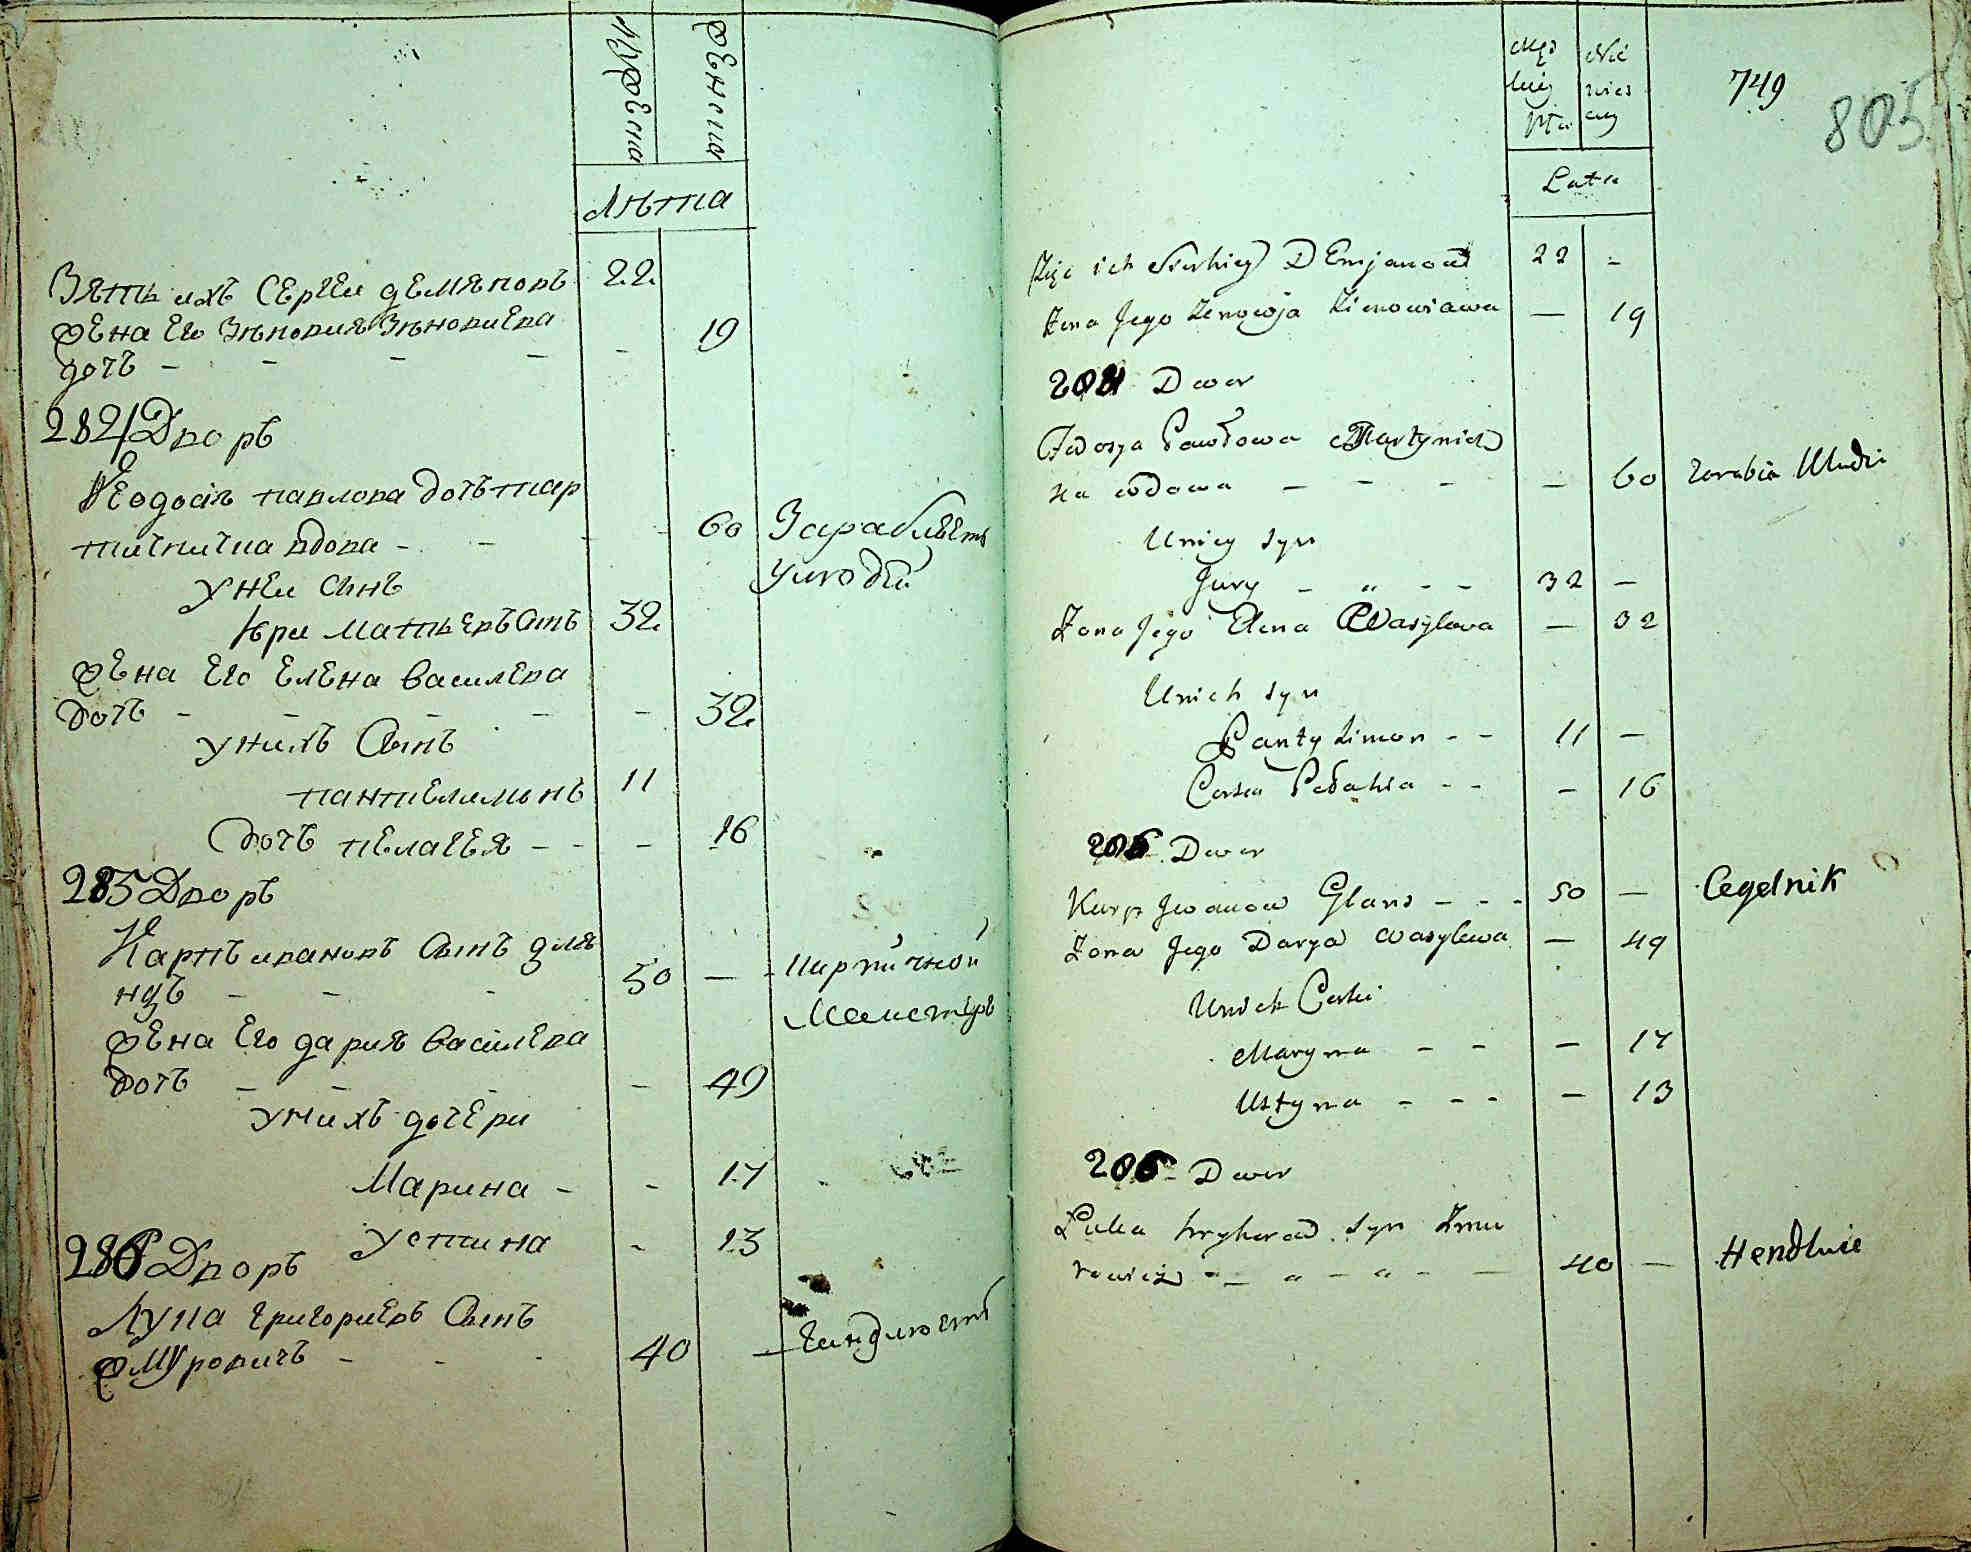 мужеска
женска
лѣта
Зять ихъ Сергеи демяновъ 22
жена Его Зѣновия Зѣновиева
дочь - - - - - 19
282/ Дворъ
Ѳеодосия павлова дочь мар
тинична вдова - - - - 60 Зарабляетъ
у людей
у неи сынъ
Юри матвеевъ сынъ 32
жена Его Елена василева
дочь - - - - - 32
у нихъ сынъ
пантелимонъ 11
дочь пелагея - - - 16
285 Дворъ
Карпъ ивановъ сынъ гля
нцъ - - - 50 — - кирпичной
маистеръ
жена Его дария василева
дочь - - - - 49
у нихъ дочери
Марина - - 17
Устина - 13
286 Дворъ
Лука григориевъ сынъ
жмуровичъ - - - 40 — гандлюетъ
męs
kiey
płci
Nie
wies
ciey
749
805
Lata
Zięc ich Sierhiey Demjanow 22 -
Żona Jego Zenowja Zienowiawa — 19
Dwor
Fedosya Pawłowa Martynicz
na wdowa — - - - — 60 zarabia u ludzi
U niey syn
Jury - " - - 32 —
Żona Jego Elena Wasylowa — 32
U nich syn
Pantylimon - - 11 —
Corka Pelahia - - - 16
206 Dwor
Karp Jwanow Glans - - - 50 — Cegelnik
Żona Jego Darya Wasylewa — 49
U nich Corki
Maryna - - — 17
Ustyna - - - — 13
206 Dwor
Łuka hryhorow syn Żmu
rowicz - — " - " - — 40 — Hendluie